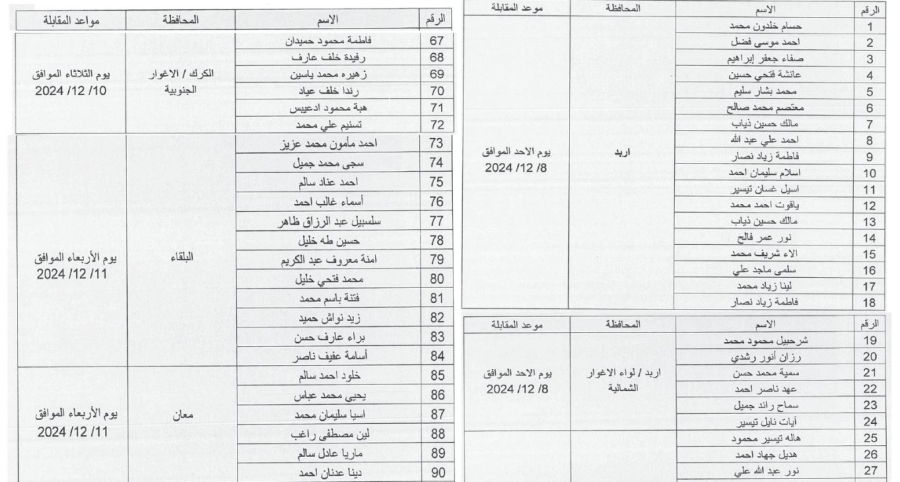 الرقم الاسم المحافظة موعد المقابلة
1 حسام خلدون محمد
2 احمد موسى فضل
3 صفاء جعفر إبراهيم
4 عائشة فتحي حسين
5 محمد بشار سليم
6 معتصم محمد صالح
7 مالك حسين ذياب
8 احمد علي عبد الله
9 فاطمة زياد نصار
10 اسلام سليمان احمد
11 اسيل غسان تيسير
12 ياقوت احمد محمد
13 مالك حسين ذياب
14 نور عمر فالح
15 الاء شريف محمد
16 سلمى ماجد علي
17 لينا زياد محمد
18 فاطمة زياد نصار
اربد
يوم الاحد الموافق
2024 /12 /8
الرقم الاسم المحافظة موعد المقابلة
19 شرحبيل محمود محمد
20 رزان أنور رشدي
21 سمية محمد حسن
22 عهد ناصر احمد
23 سماح رائد جميل
24 آيات نايل تيسير
اربد / لواء الاغوار
الشمالية
يوم الاحد الموافق
2024 /12 /8
25 هاله تيسير محمود
26 هديل جهاد احمد
27 نور عبد الله علي
الرقم الاسم المحافظة مواعد المقابلة
67 فاطمة محمود حميدان
68 رفيدة خلف عارف
69 زهيره محمد ياسين
70 رندا خلف عياد
71 هبة محمود ادعيبس
72 تسنيم علي محمد
الكرك / الاغوار
الجنوبية
يوم الثلاثاء الموافق
2024 /12 /10
73 احمد مأمون محمد عزيز
74 سجى محمد جميل
75 احمد عناد سالم
76 أسماء غالب احمد
77 سلسبيل عبد الرزاق ظاهر
78 حسين طه خليل
79 امنة معروف عبد الكريم
80 محمد فتحي خليل
81 فتنة باسم محمد
82 زيد نواش حميد
83 براء عارف حسن
84 أسامة عفيف ناصر
البلقاء
يوم الأربعاء الموافق
2024 /12 /11
85 خلود احمد سالم
86 يحيى محمد عباس
87 اسيا سليمان محمد
88 لين مصطفى راغب
89 ماريا عادل سالم
90 دينا عدنان احمد
معان
يوم الأربعاء الموافق
2024 /12 /11